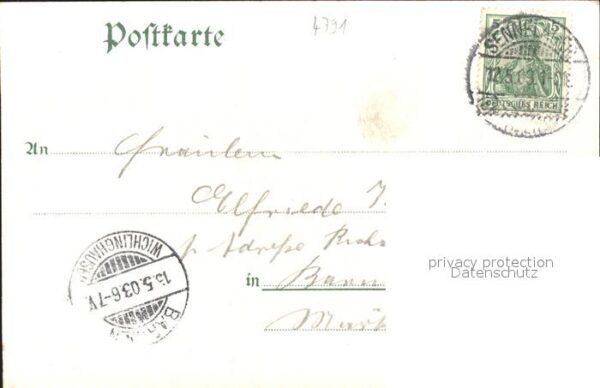 Postkarte
4791
5 5
SENNELAGER
12.5.03
DEUTSCHES REICH
An Fräulein
Elfriede J.
p. Adresse
in Barm
Markt
WICHLINGHAUSEN
13.5.03.6-7V
BARMEN
privacy protection
Datenschutz